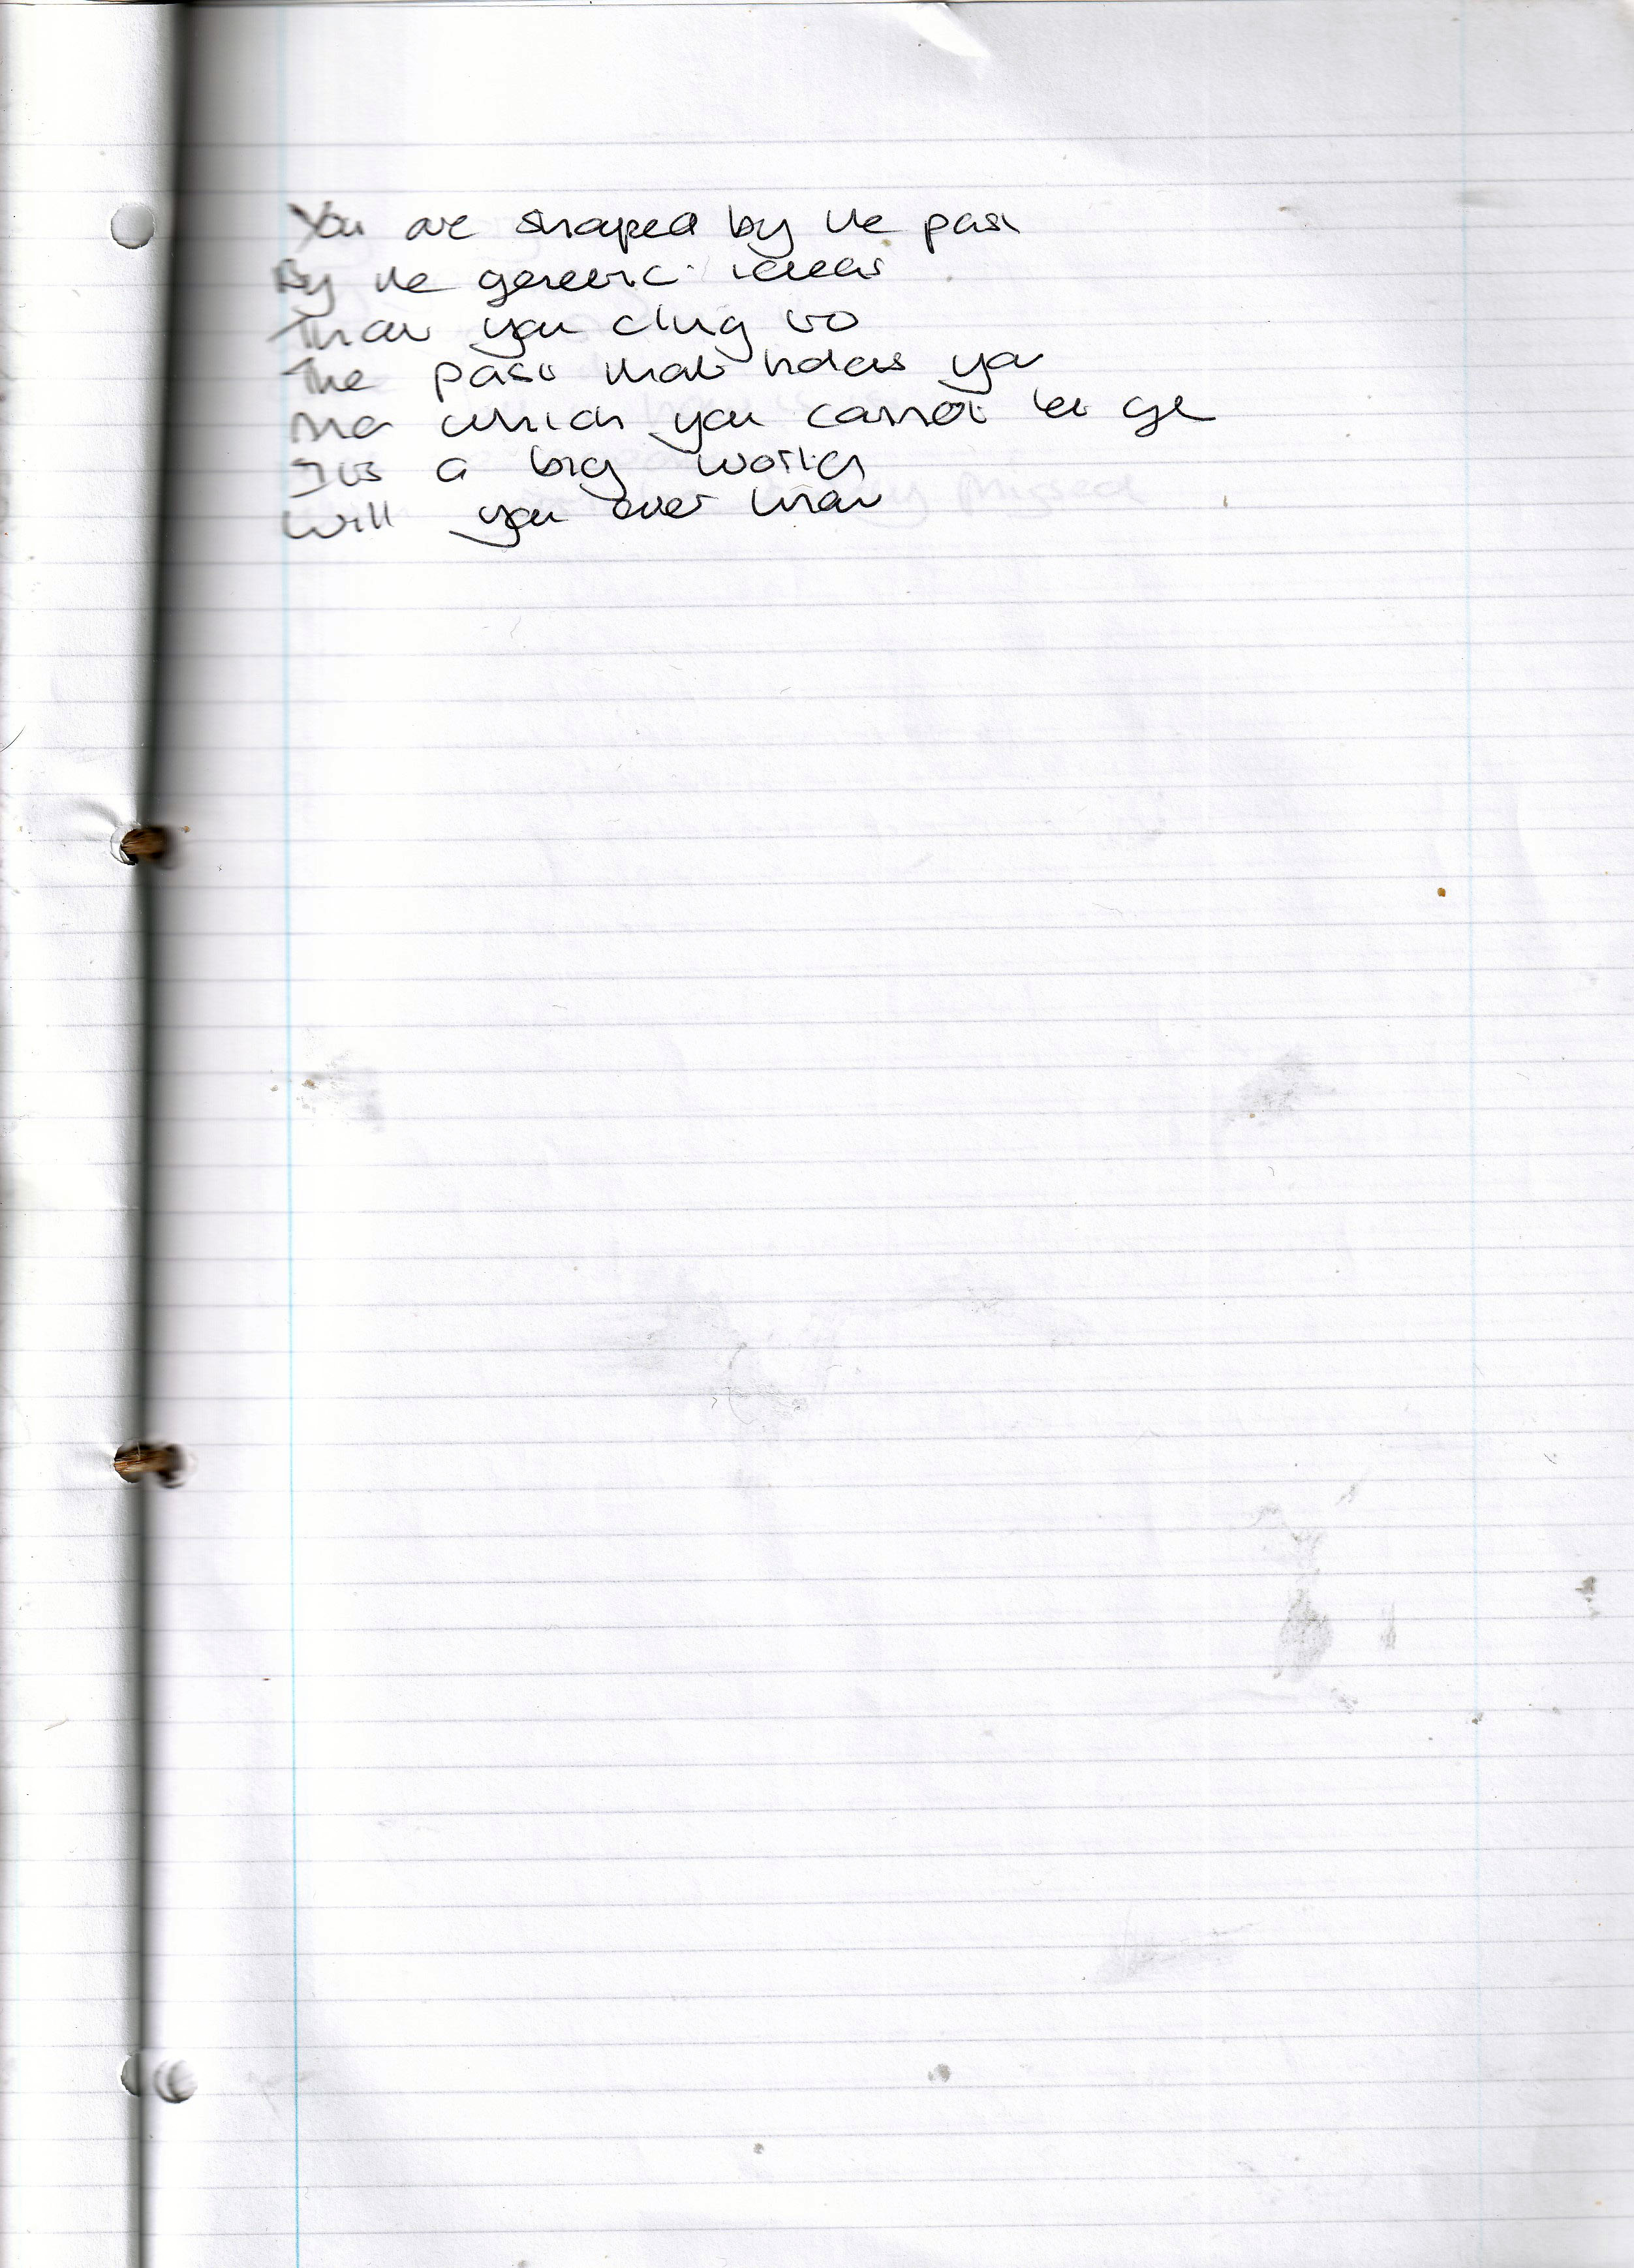 You are shaped by the past
By the generic ideas
That you cling to
The past that holds you
And which you cannot let go
It's a big world
Will you ever know